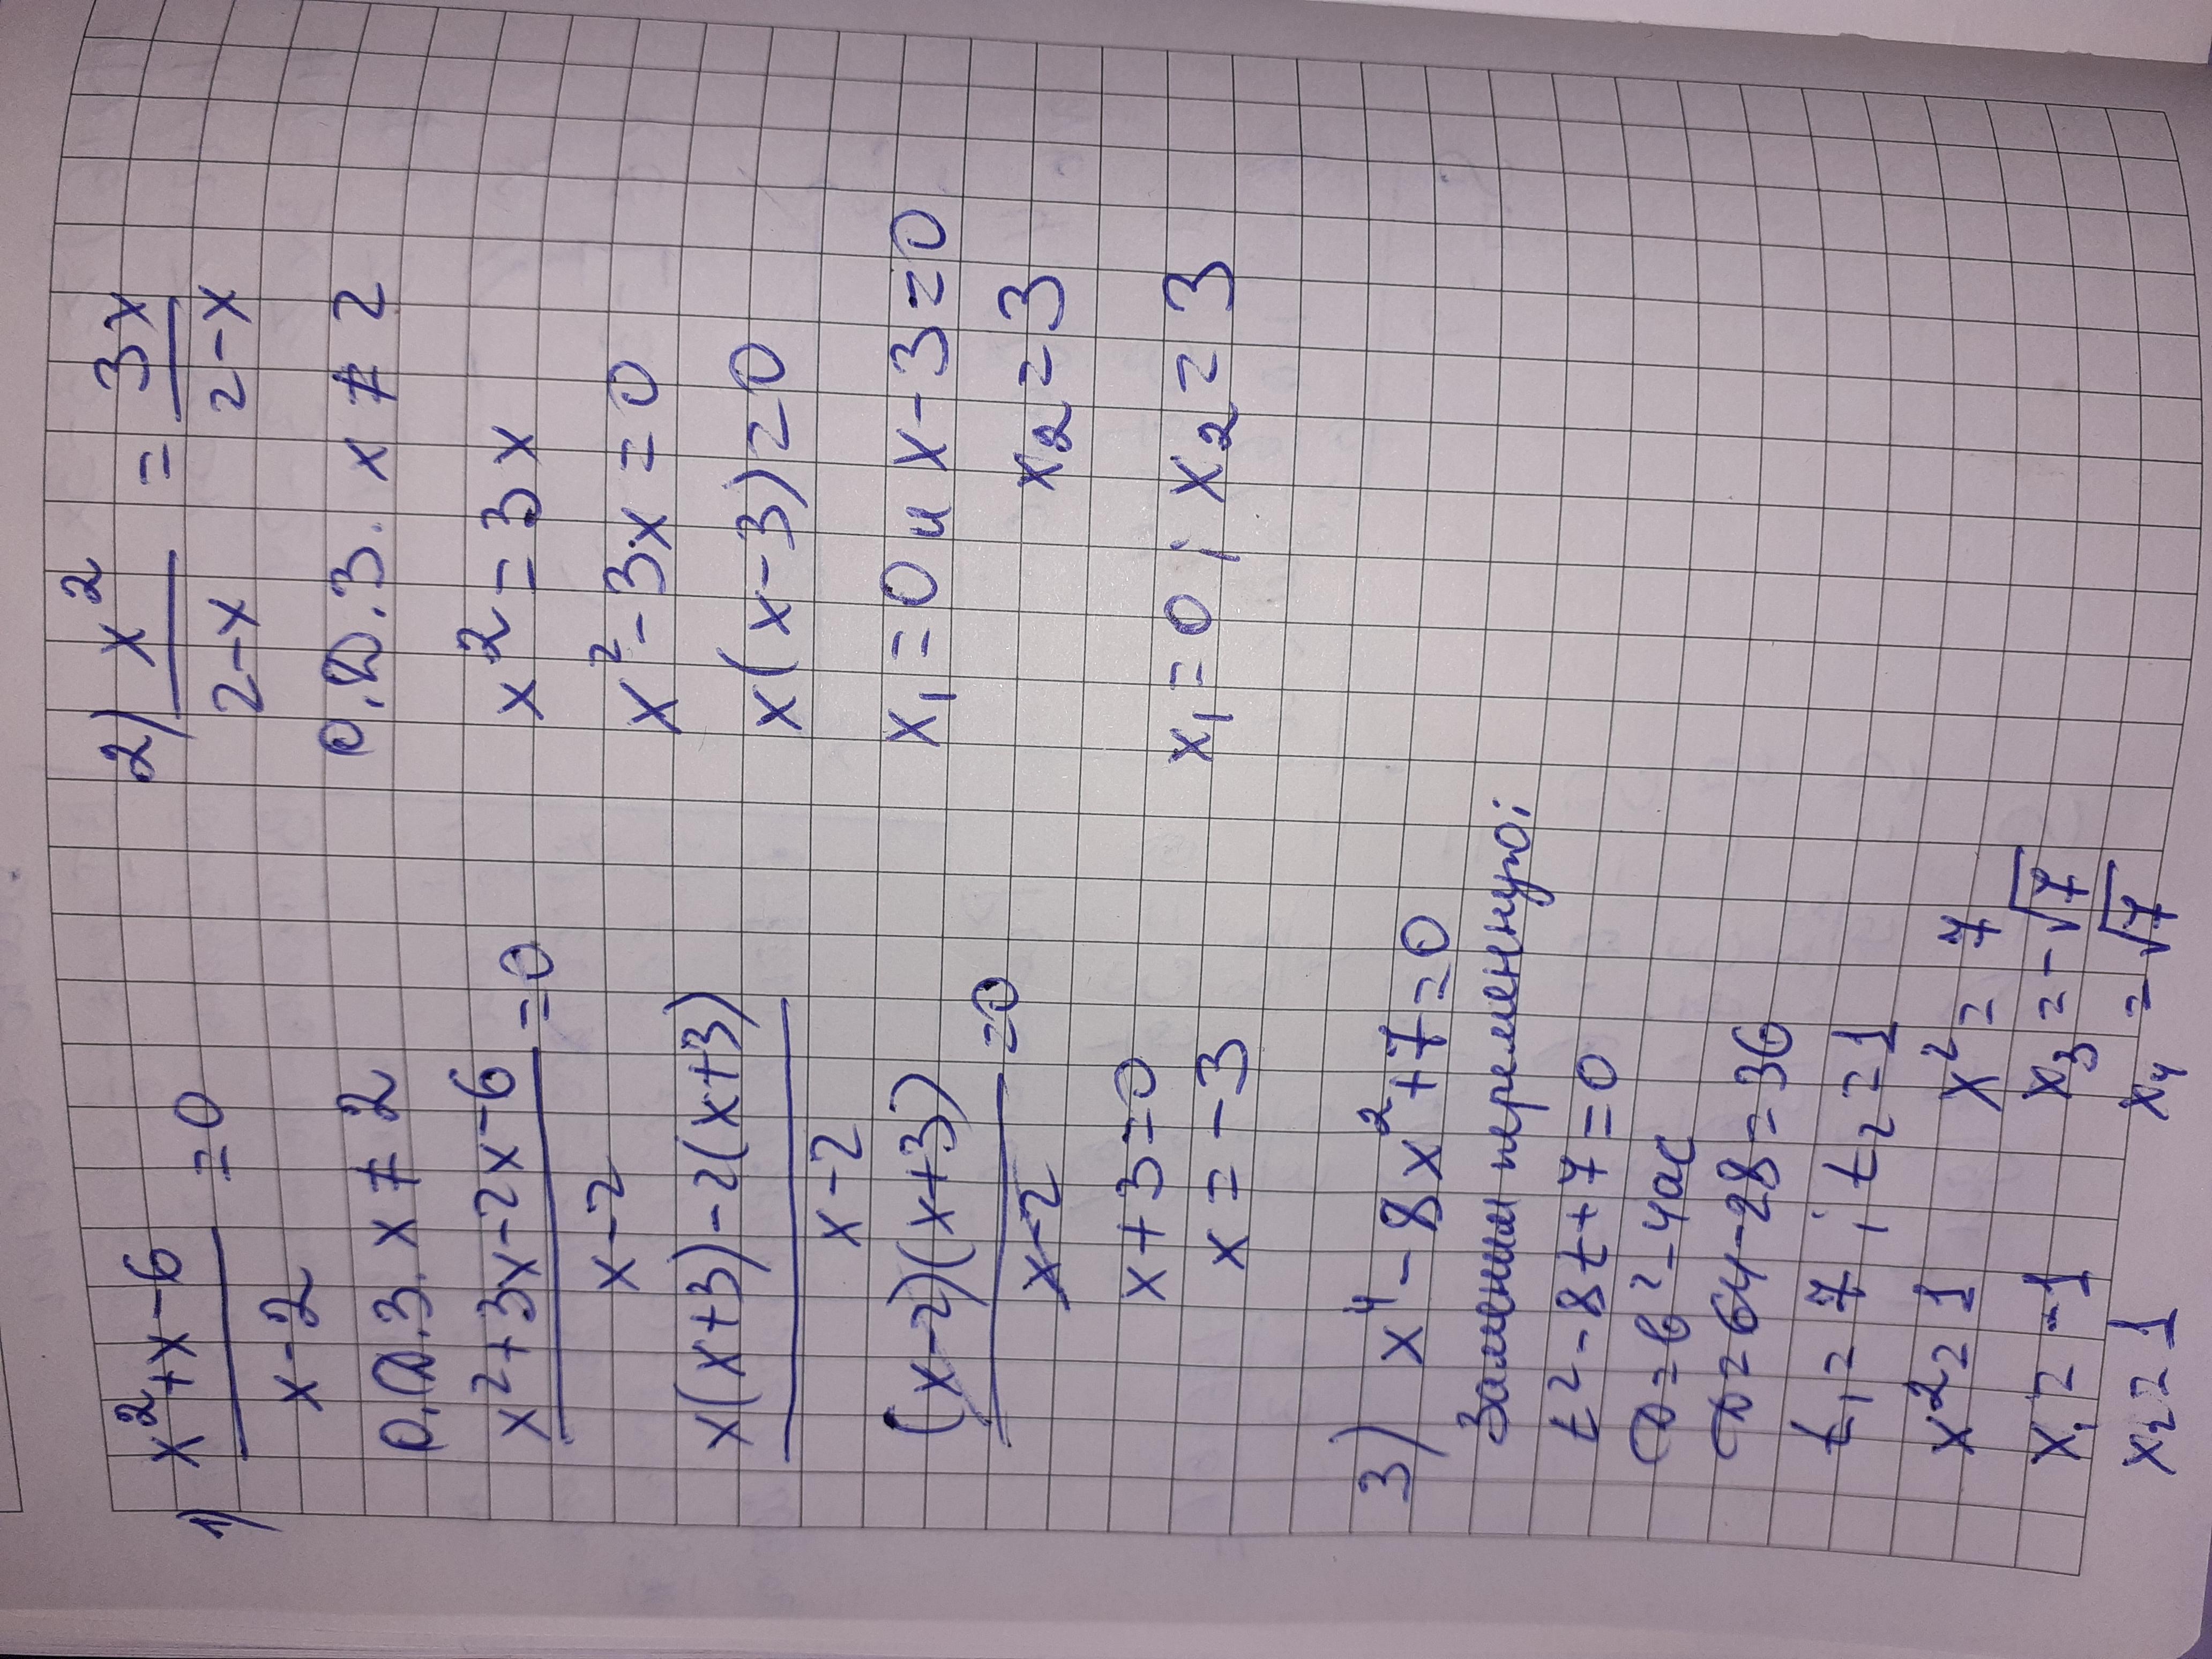 1) x²+x-6 / x-2 =0
О.Д.З. x ≠ 2
x²+3x-2x-6 / x-2 =0
x(x+3)-2(x+3) / x-2
(x-2)(x+3) / x-2 =0
x+3=0
x=-3
2) x² / 2-x = 3x / 2-x
О.Д.З. x ≠ 2
x²=3x
x²-3x=0
x(x-3)=0
x₁=0 и x-3=0
x₂=3
x₁=0; x₂=3
3) x⁴-8x²+7=0
Заменим переменную:
t²-8t+7=0
D=b²-4ac
D=64-28=36
t₁=7; t₂=1
x²=1
x₁=-1
x₂=1
x²=7
x₃=-√7
x₄=√7